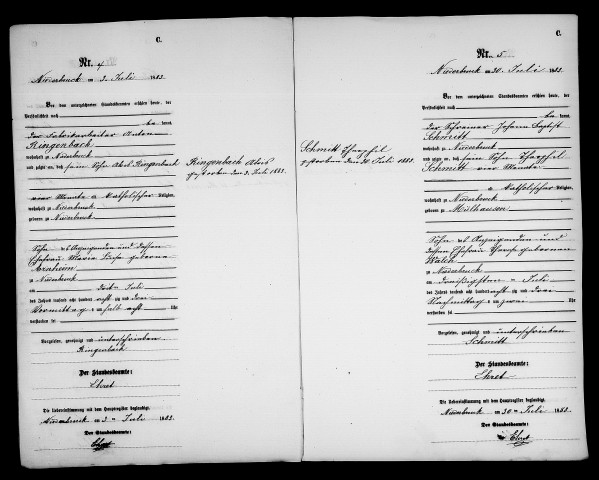 C.
Nr. 4
Niederbruck am 3. Juli 1883
Vor dem unterzeichneten Standesbeamten erschien heute, der
Persönlichkeit nach
kannt,
der Fabrikarbeiter Anton
Ringenbach
wohnhaft zu Niederbruck
und zeigte an, daß sein Sohn Alois Ringenbach
vier Monate a katholischer Religion,
wohnhaft zu Niederbruck
geboren zu Niederbruck
Sohn des Anzeigenden und dessen
Ehefrau Maria Luise geborene
Arnheim
zu Niederbruck
am dritten Juli
des Jahres tausend acht hundert acht zig und drei
Vormittag um halb acht Uhr
verstorben sei
Vorgelesen, genehmigt und unterschrieben
Ringenbach
Der Standesbeamte:
Ehret
Die Uebereinstimmung mit dem Hauptregister beglaubigt.
Niederbruck am 3. Juli 1883.
Der Standesbeamte:
Ehret
Ringenbach Alois
gestorben den 3. Juli 1883.
Schmitt Theophil
gestorben den 30. Juli 1883.
C.
Nr. 5
Niederbruck am 30. Juli 1883
Vor dem unterzeichneten Standesbeamten erschien heute, der
Persönlichkeit nach
kannt,
der Johann Baptist
Schmitt
wohnhaft zu Niederbruck
und zeigte an, daß sein Sohn Theophil
Schmitt vier Monate
a katholischer Religion,
wohnhaft zu Niederbruck
geboren zu Mülhausen
Sohn des Anzeigenden und
dessen Ehefrau Therese geborenen
Walch
zu Niederbruck
am dreißigsten Juli
des Jahres tausend acht hundert acht zig und drei
Nachmittag um zwei Uhr
verstorben sei
Vorgelesen, genehmigt und unterschrieben
Schmitt
Der Standesbeamte:
Ehret
Die Uebereinstimmung mit dem Hauptregister beglaubigt.
Niederbruck am 30. Juli 1883.
Der Standesbeamte:
Ehret